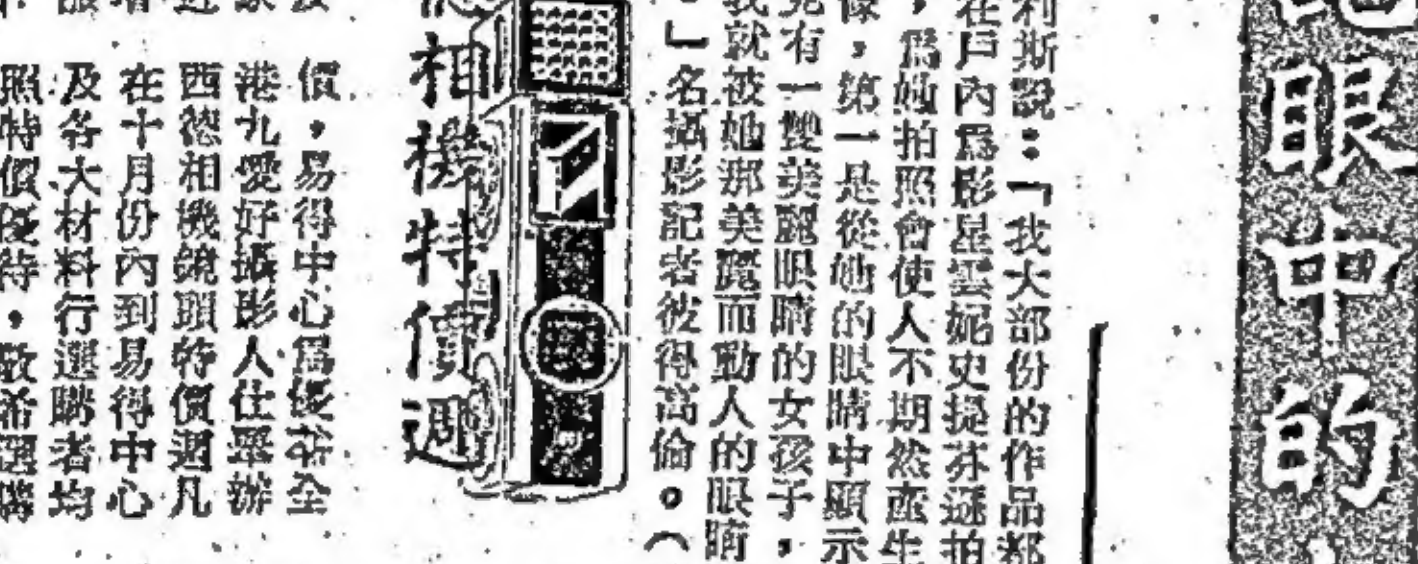 眼中的
利斯說：「我大部份的作品都
在戶內爲影星雲妮史提芬遜拍
，爲她拍照會使人不期然產生
像，第一是從她的眼睛中顯示
見有一雙美麗眼睛的女孩子，
我就被她那美麗而動人的眼睛
。」名攝影記者彼得高倫。（
相機特價週
價，易得中心爲優待全
港九愛好攝影人仕舉辦
西德相機鏡頭特價週凡
在十月份內到易得中心
及各大材料行選購者均
照特價優待，敬希選購